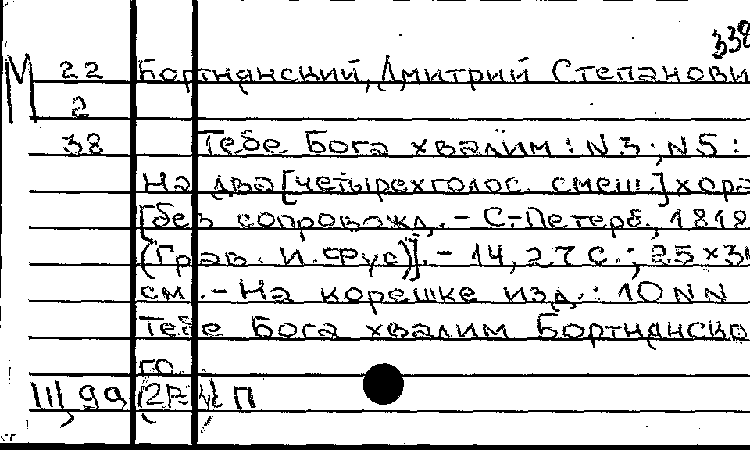 338
М 22 Бортнянский, Дмитрий Степанови
2
38 Тебе Бога хвалим: N3; N5:
На два [четырехголос. смеш.] хора
[без сопровожд. - С.-Петерб., 1818
(Грав. И. Фус)]. - 14, 27 с.; 25×3
см. - На корешке изд.: 10 NN
Тебе Бога хвалим Бортнянско
го
III, 99 П